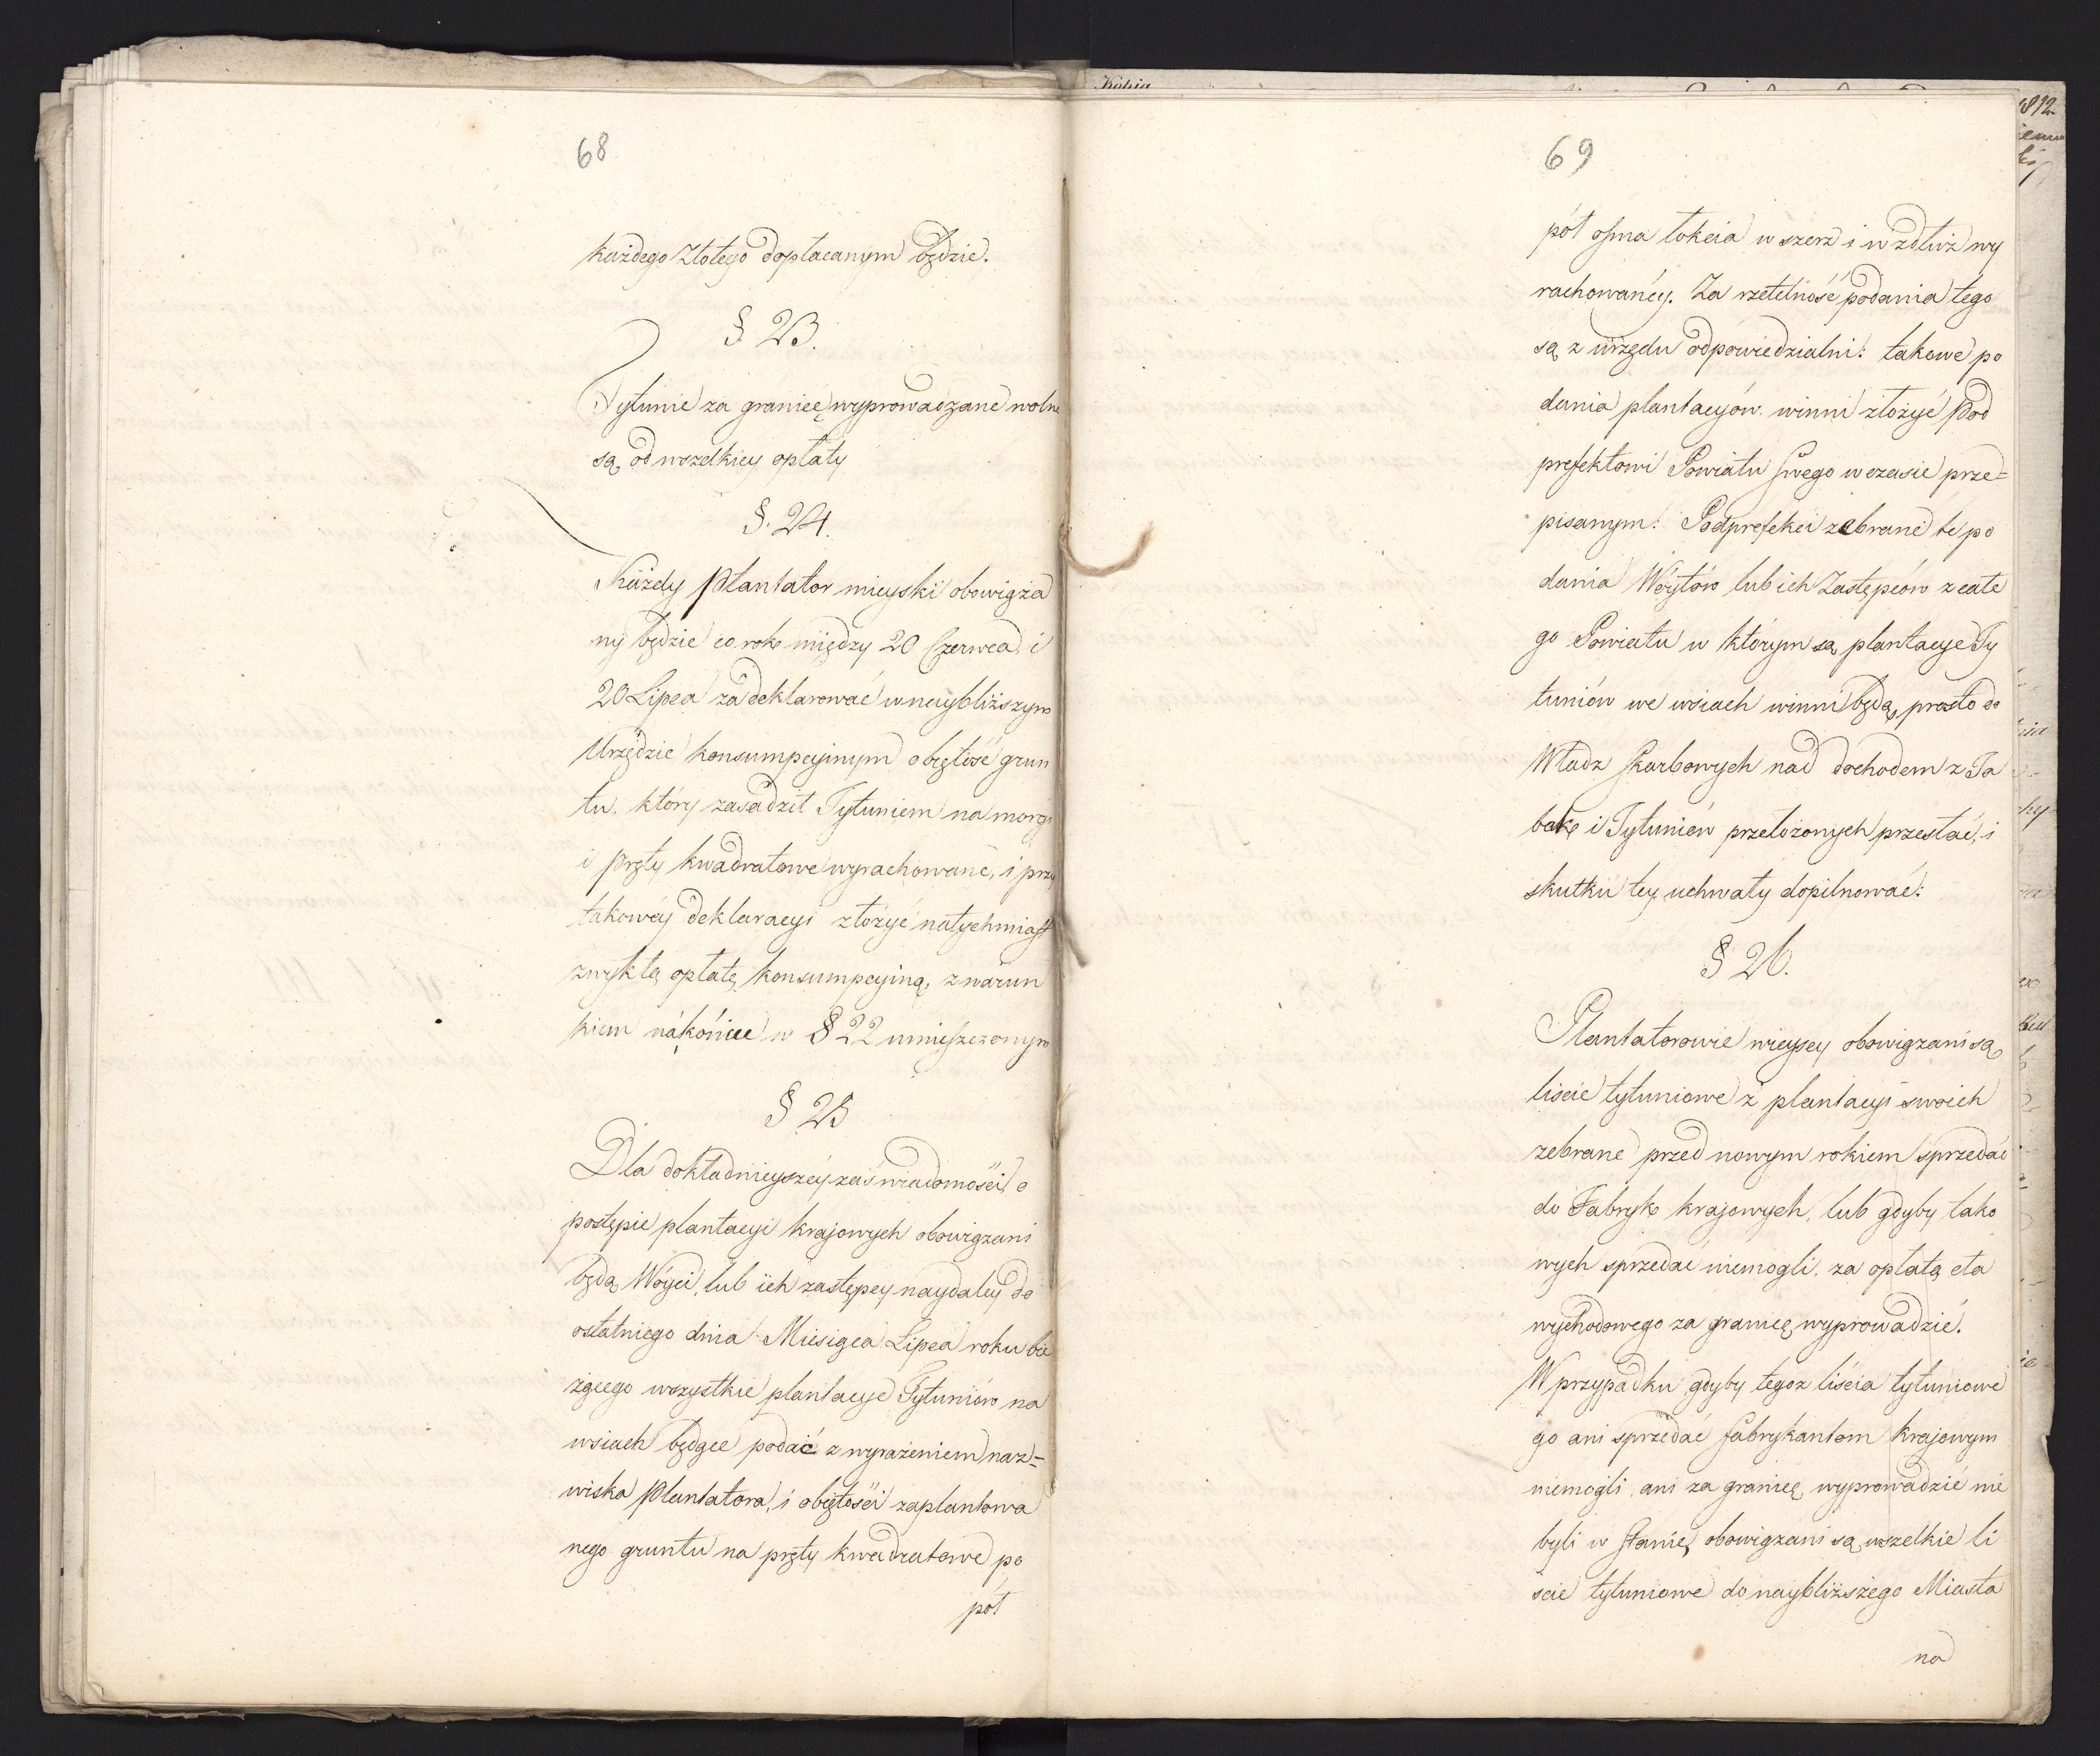 68
każdego Złotego dopłacanym będzie.
§ 23.
Tytunie za granicę wyprowadzane wolne
są od wszelkiey opłaty
§. 24.
Każdy Plantator mieyski obowiąza
ny będzie co rok między 20 Czerwca i
20 Lipca zadeklarować w nayblizszym
Urzędzie konsumpcyinym objętość grun
tu, który zasadził Tytuniem na morgi
i pręty kwadratowe wyrachowane, i przy
takowéy deklaracyi złożyć natychmiast
zwykłą opłatę konsumpcyiną, z warun
kiem nakońcu w § 22 umieszczonym
§ 25
Dla dokładnieyszéy zaś wiadomości o
postępie plantacyi krajowych obowiązani
będą Wóyci, lub ich zastępcy naydaléy do
ostatniego dnia Miesiąca Lipca roku bie
żącego wszystkie plantacye Tytuniów na
wsiach będące podać z wyrażeniem naz=
wiska Plantatora, i objętości zaplantowa
nego gruntu na pręty kwadratowe po
pół
Kopia
69
pół osma łokcia wszerz i wzdłuż wy
rachowanéy. Za rzetelność podania tego
są z urzędu odpowiedzialni: takowe po
dania plantacyów winni złożyć Pod
prefektowi Powiatu swego w czasie prze=
pisanym: Podprefekci zebrane te po
dania Wóytów lub ich Zastępców z całe
go Powiatu w którym są plantacye Ty
tuniów we wsiach winni będą, prosto do
Władz Skarbowych nad dochodem z Ta
bak i Tytuniów przełożonych przesłać, i
skutku tey uchwały dopilnować:
§ 26.
Plantatorowie wieyscy obowiązani są
liscie tytuniowe z plantacyi swoich
zebrane przed nowym rokiem sprzedać
do Fabryk krajowych, lub gdyby tako
wych sprzedać niemogli, za opłatą cła
wychodowego za granicę wyprowadzić.
W przypadku gdyby tegoż liścia tytuniowe
go ani sprzedać fabrykantom krajowym
niemogli, ani za granicę wyprowadzić nie
byli w stanie, obowiązani są wszelkie li
ście tytuniowe do nayblizszego Miasta
na